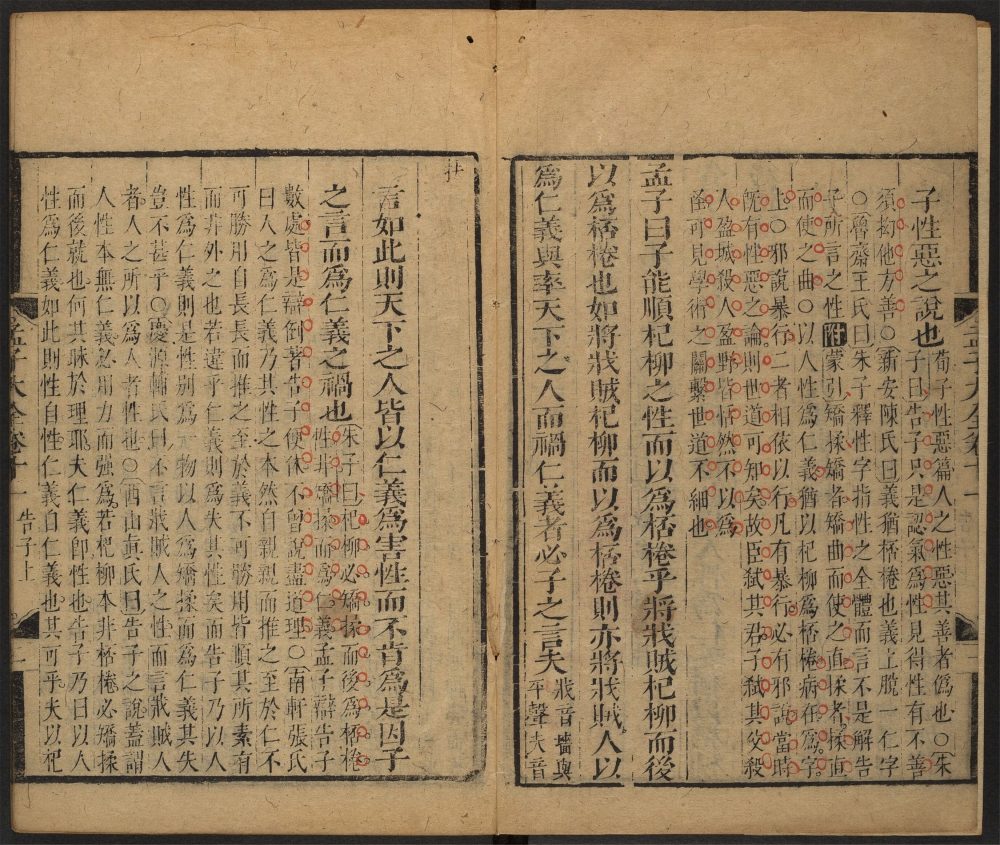 子性惡之說也荀子性惡篇人之性惡其善者僞也○朱
子曰告子只是認氣爲性見得性有不善
須拗他方善○新安陳氏曰義猶桮棬也義上脫一仁字
○魯齋王氏曰朱子釋性字指性之全體而言不是解告
子所言之性附蒙引矯揉矯者矯曲而使之直揉者揉直
而使之曲○以人性爲仁義猶以杞柳爲桮棬病在爲字
上○邪說暴行二者相依以行凡有暴行必有邪說當時
旣有性惡之論則世道可知矣故臣弑其君子弑其父殺
人盈城殺人盈野皆恬然不以爲
怪可見學術之關繫世道不細也
孟子曰子能順杞柳之性而以爲桮棬乎將戕賊杞柳而後
以爲桮棬也如將戕賊杞柳而以爲桮棬則亦將戕賊人以
爲仁義與率天下之人而禍仁義者必子之言夫戕音墻與
平聲夫音
孟子大全卷十一
孟子大全卷十一 告子上 一
言如此則天下之人皆以仁義爲害性而不肯爲是因子
之言而爲仁義之禍也朱子曰杞柳必矯揉而後爲桮棬
性非矯揉而爲仁義孟子辯告子
數處皆是辯倒著告子便休不曾說盡道理○南軒張氏
曰人之爲仁義乃其性之本然自親親而推之至於仁不
可勝用自長長而推之至於義不可勝用皆順其所素有
而非外之也若違乎仁義則爲失其性矣而告子乃以人
性爲仁義則是性別爲一物以人爲矯揉而爲仁義其失
豈不甚乎○慶源輔氏曰不言戕賊人之性而言戕賊人
者人之所以爲人者性也○西山眞氏曰告子之說蓋謂
人性本無仁義必用力而强爲若杞柳本非桮棬必矯揉
而後就也何其昧於理耶夫仁義卽性也告子乃曰以人
性爲仁義如此則性自性仁義自仁義也其可乎夫以杞